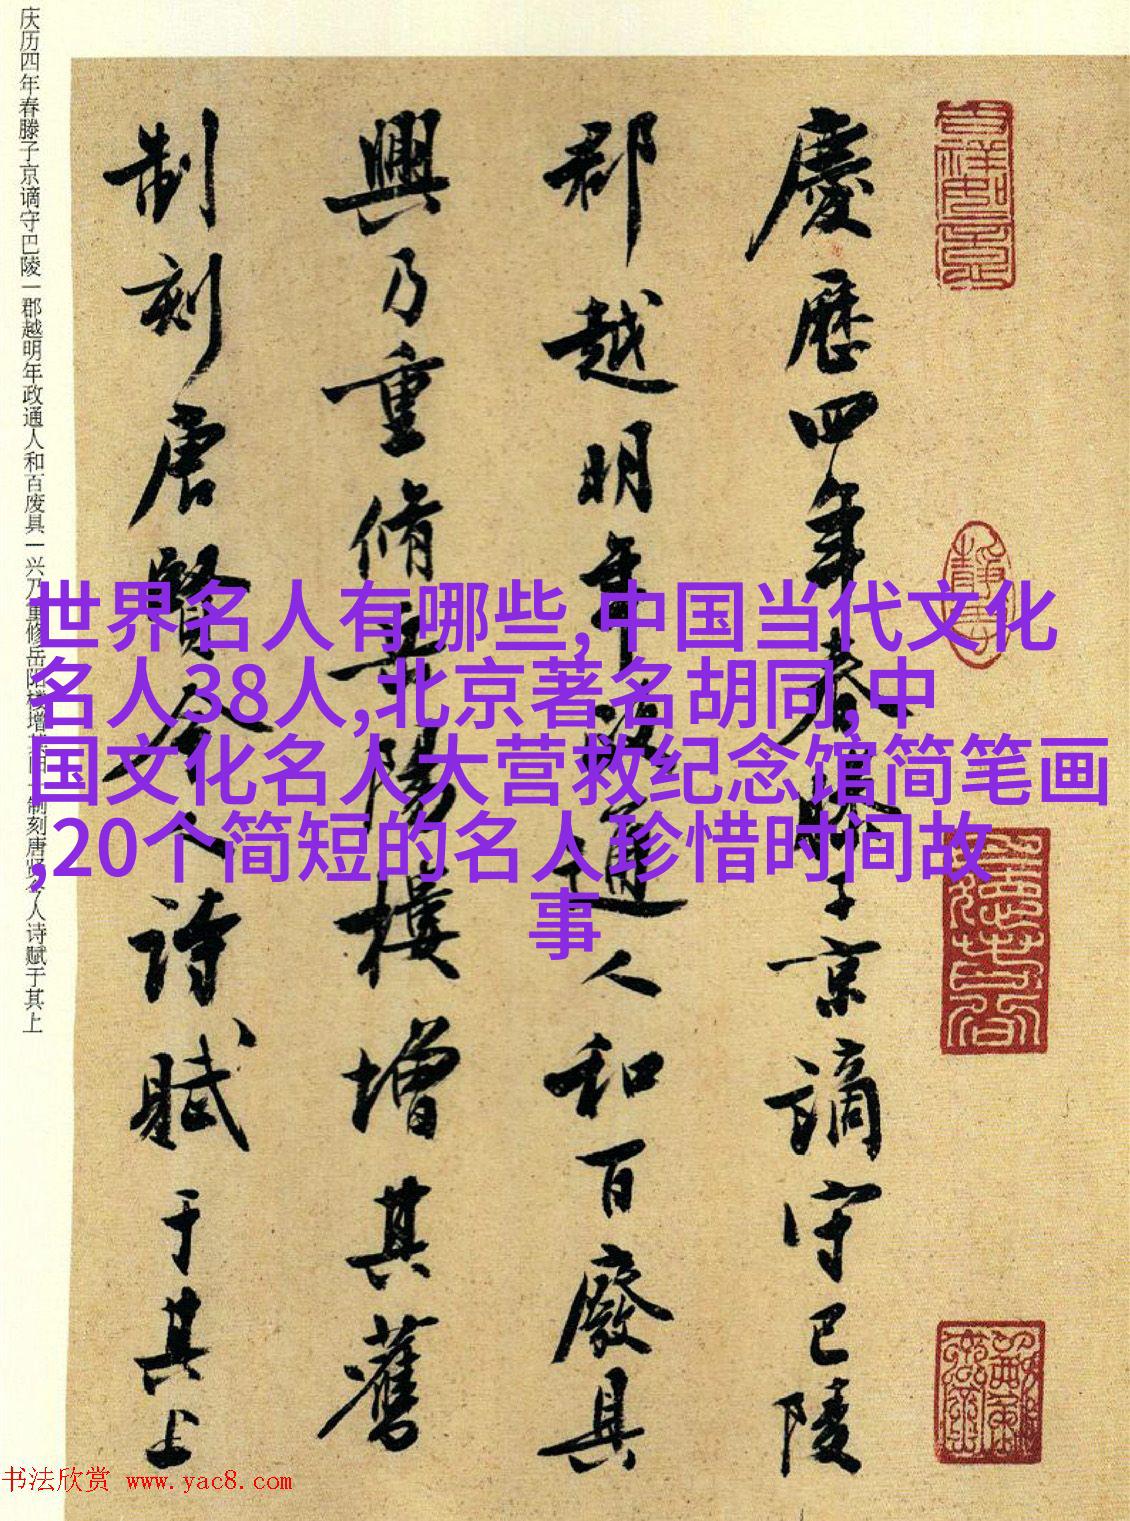 慶歷四年春滕子京謫守巴陵
郡越明年政通人和百廢具
興乃重脩岳陽樓增其舊
制刻唐賢今人詩賦于其上
庆历四年春滕子京谪守巴陵一郡越明年政通人和百废具一兴乃重修岳阳楼增其旧一制刻唐贤今人诗赋于其上
世界名人有哪些,中国当代文化
名人38人,北京著名胡同,中
国文化名人大营救纪念馆简笔画
,20个简短的名人珍惜时间故
事
书法欣赏 www.yac8.com